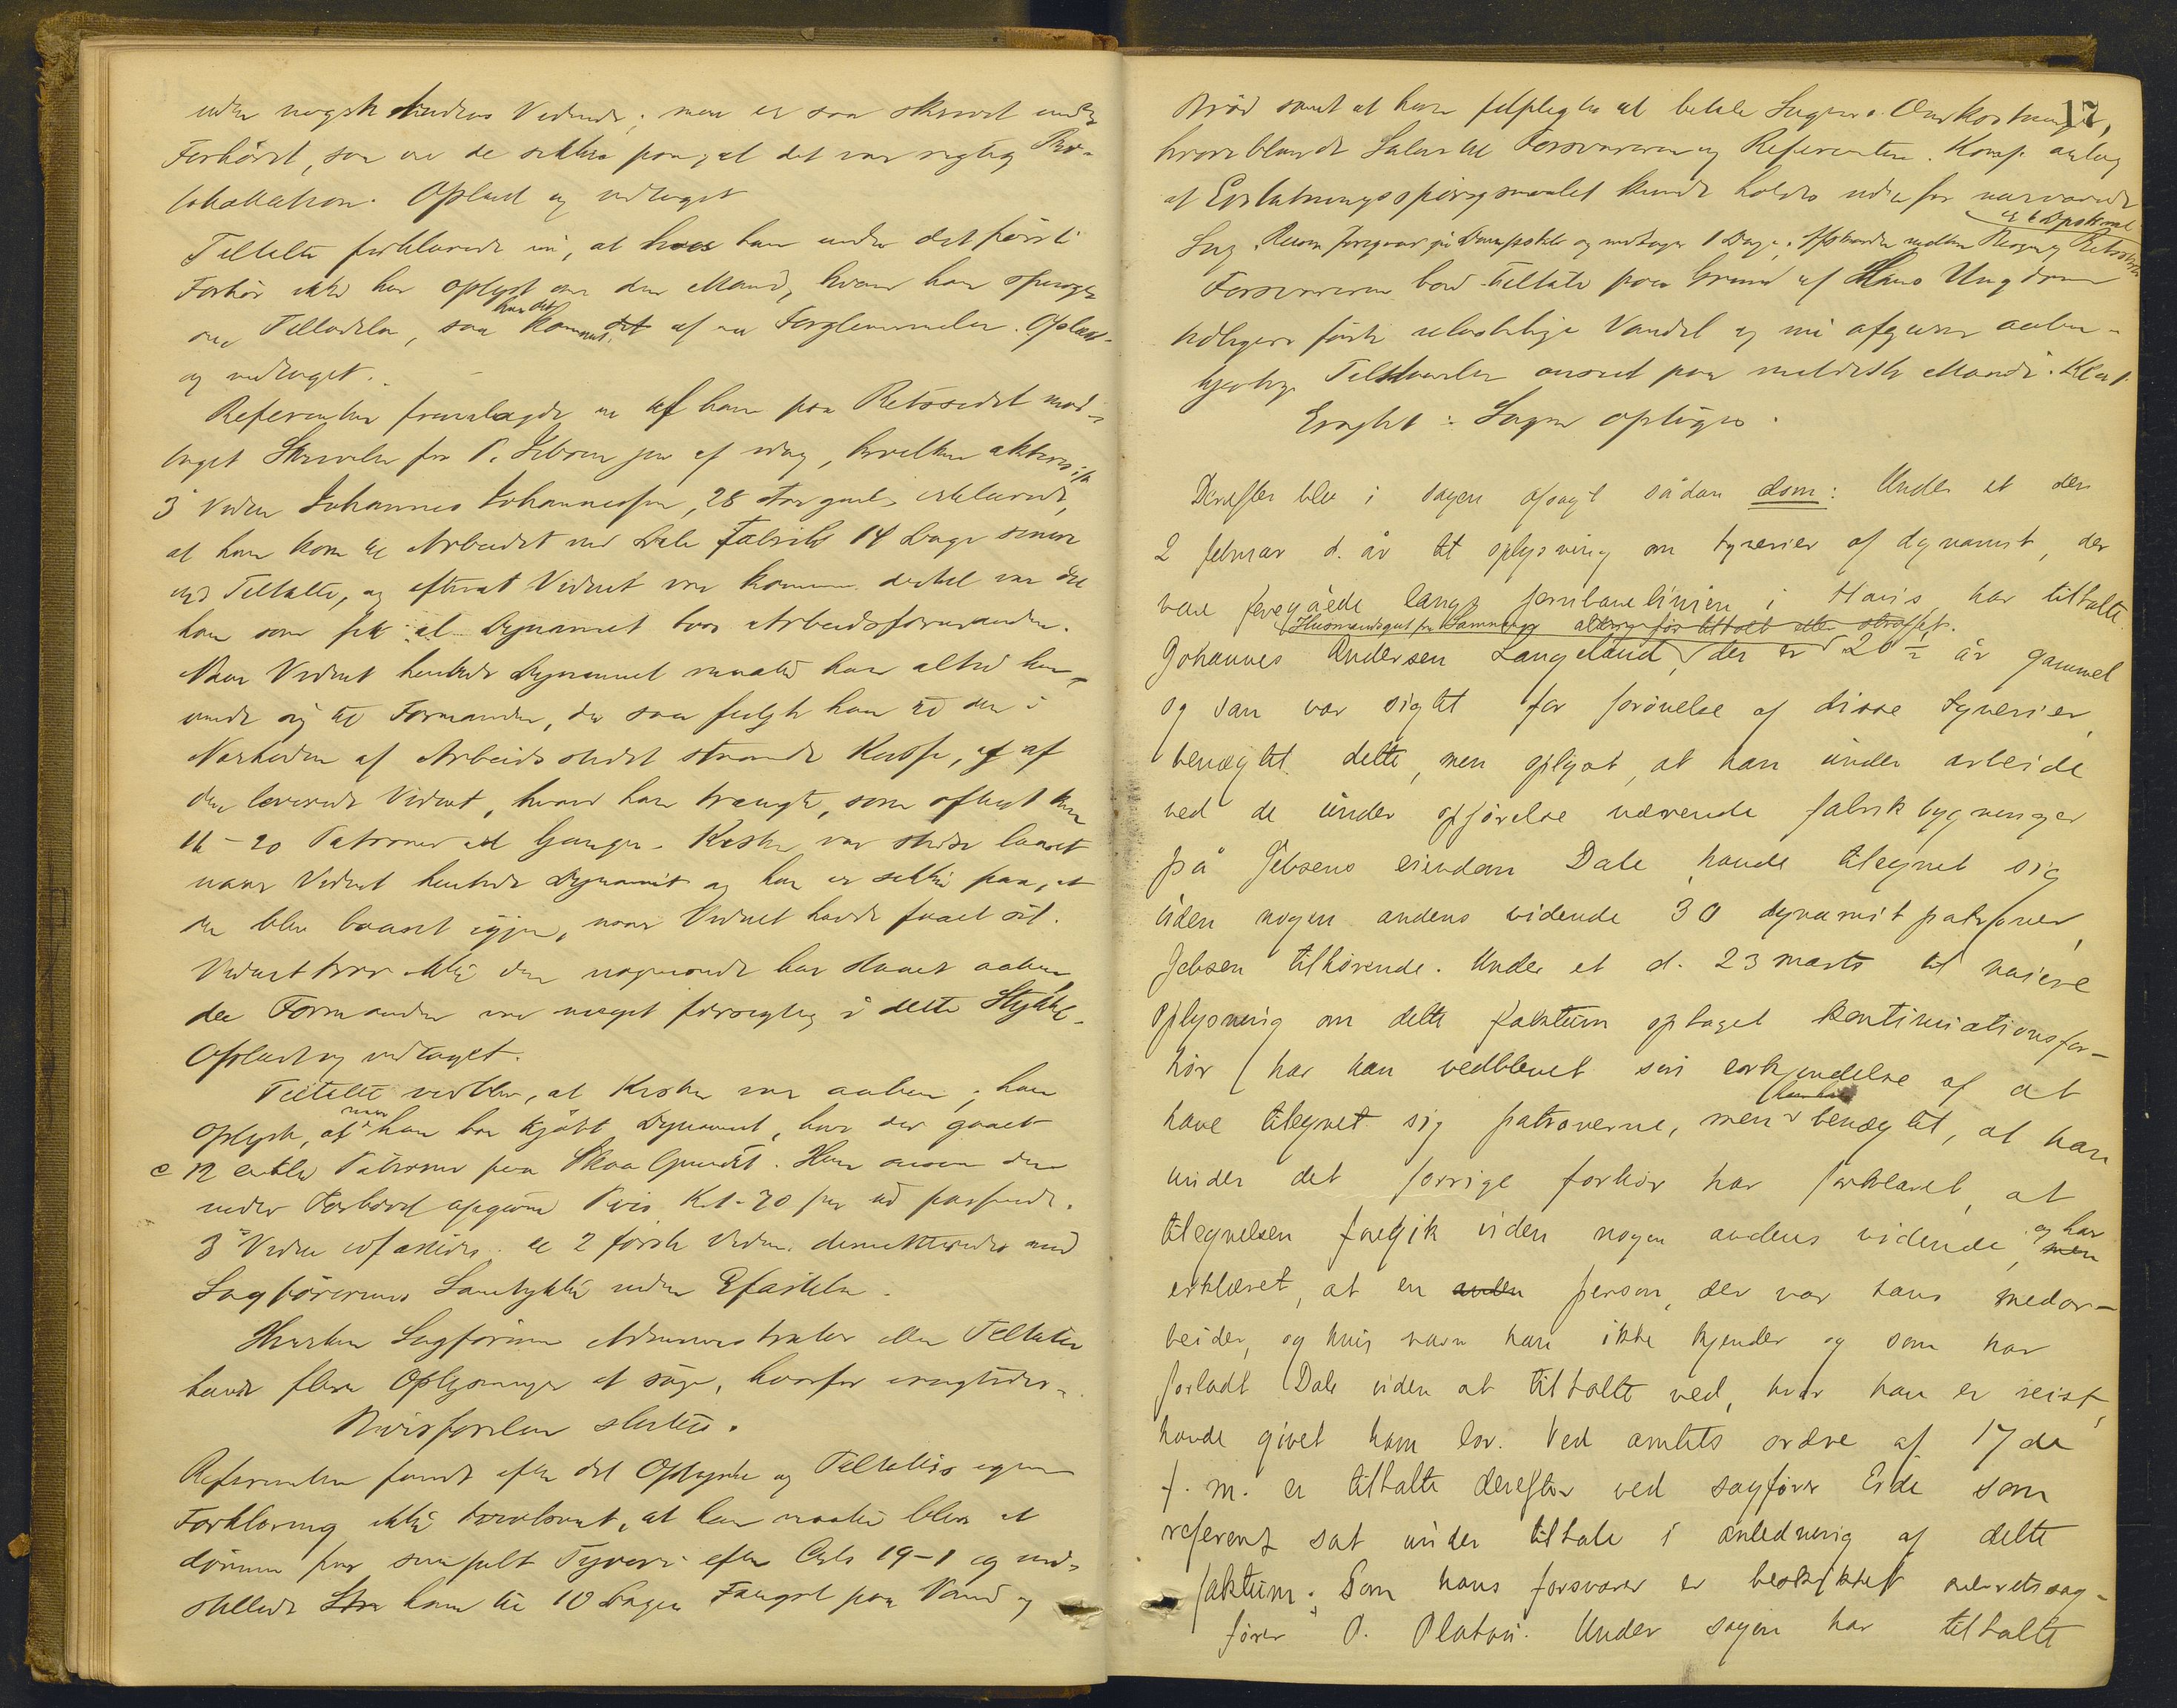 uden nogen Andens Vidende; men er saa skrevet under
Forhöret, saa er de sikkre paa, at det var rigtig Pro-
tokollation. Oplæst og vedtaget
Tiltalte forklarede nu, at hvis han under det första
Forhör ikke har oplyst om den Mand, hvem han spurgte
om Tilladelse, saa kommer det af en Forglemmelse. Oplæst
har det
og vedtaget.
Referenten fremlagde en af ham paa Retsstedet mod-
taget Skrivelse fra P. Jebsen jun af idag, hvilken akteres
3' Vidne Johannes Johannessen, 28 Aar gml, erklærede,
at han kom til Arbeidet ved Dale Fabrik 14 Dage senere
end Tiltalte, og efterat Vidnet var kommen dertil var det
ham som fik al Dynamit hos Arbeidsformanden.
Naar Vidnet hentede Dynamit maatte han altid hen-
vende sig til Formanden, der saa fulgte ham til den i
Nærheden af Arbeidsstedet staaende Kasse, og af
den leverede Vidnet, hvad han trængte, som oftest
16-20 Patroner ad Gangen. Kisten var stedse laaset
naar Vidnet hentede Dynamit og han er sikker paa, at
den blev laaset igjen, naar Vidnet havde faaet sit.
Vidnet tror ikke den nogensinde har staaet aaben,
da Formanden var meget forsigtig i dette Stykke.
Oplæst og vedtaget.
Tiltalte vedblev, at Kisten var aaben; han
oplyste, at naar han har kjöbt Dynamit, har der gaaet
c 12 enkle Patroner paa Skaalpundet. Han ansaa den
under Forhöret opgivne Pris Kr 1.70 for at passende.
3' Vidne . De 2 förste Vidner demitteredes med
Sagförernes Samtykke uden .
Hverken Sagförerne Administrator eller Tiltalte
havde flere Oplysninger at söge, hvorfor eragtedes:
Beviisförselen sluttes.
Referenten fandt efter det Oplyste og Tiltaltes egen
Forklaring ikke tvivlsomt, at han maatte blive at
dömme for simpelt Tyveri efter Crls 19-1 og ind-
stillede ham til 10 Dages Fængsel paa Vand og
17
Bröd samt at han tilpligtes at betale Sagens Omkostninger,
hvoriblandt Salær til Forsvareren og Referenten.
at Erstatningsspörgsmaalet kunde holdes udenfor nærværende
Sag. Reisen foregaar pr Dampskib og medtager 1 Dag; Afstanden mellem Bergen og Retsstedet
er 6
Forsvareren bad tiltalte paa Grund af Hans Ungdom
tidligere förte ulastelige Vandel og nu afgivne aaben-
hjertige Tilstaaelse anseet paa mildeste Maade.
Eragtet: Sagen optages.
Derefter blev i sagen afsagt sådan dom: Under et den
2 februar d. år til oplysning om tyverier af dynamit, der
var foregåede langs jernbanelinien i Haus har tiltalte
Husmandsgut fra Samnanger aldrig för tiltalt eller straffet.
Johannes Andersen Langeland, der er 20½ år gammel
og som var sigtet for forövelse af disse tyverier,
benægtet dette, men oplyst, at han under arbeide
ved de under opförelse værende fabrikbygninger
på Jebsens eiendom Dale, havde tilegnet sig
uden nogen andens vidende 30 dynamitpatroner,
Jebsen tilhörende. Under et d. 23 marts til nöiere
oplysning om dette faktum optaget kontinuationsfor-
hör har han vedblevet sin erkjendelse af at
have tilegnet sig patronerne, men benægtet, at han
under det forrige forhör har forklaret, at
tilegnelsen foregik uden nogen andens vidende, og har
men
erklæret, at en anden person, der var hans medar-
beider, og hvis navn han ikke kjender og som har
forladt Dale uden at tiltalte ved, hvor han er reist,
havde givet ham lov. Ved amtets ordre af 17de
f. m. er tiltalte derefter ved sagförer Eide som
referent sat under tiltale i anledning af dette
faktum. Som hans forsvarer er beskikket overretssag-
förer O. Platou. Under sagen har tiltalte